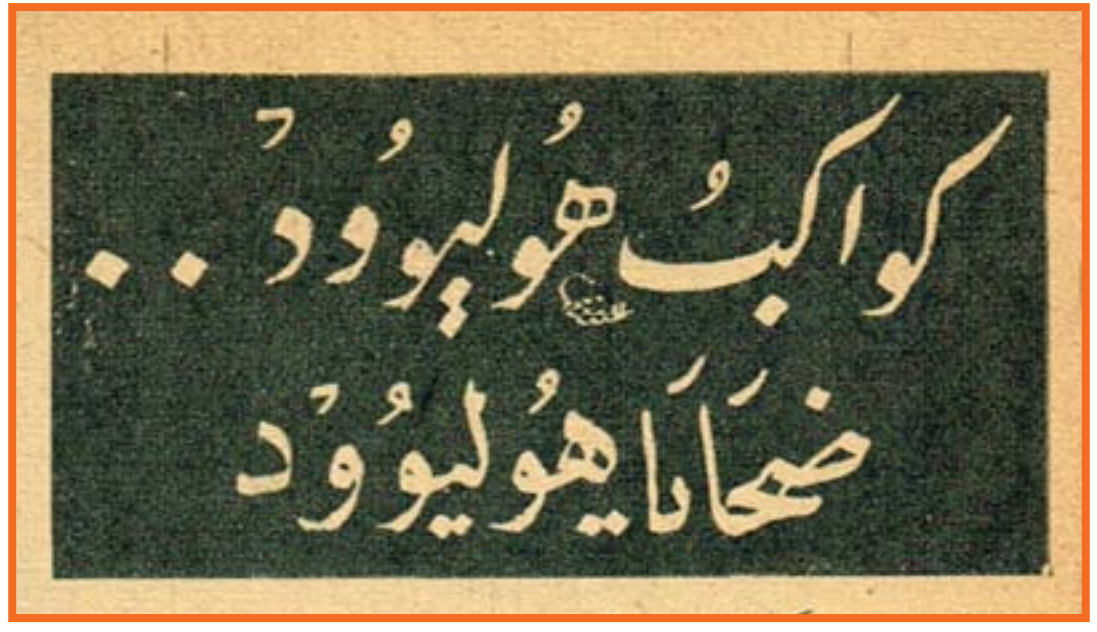 كواكبُ هُوليوُودْ ..
ضحَايَا هُوليوُوْد